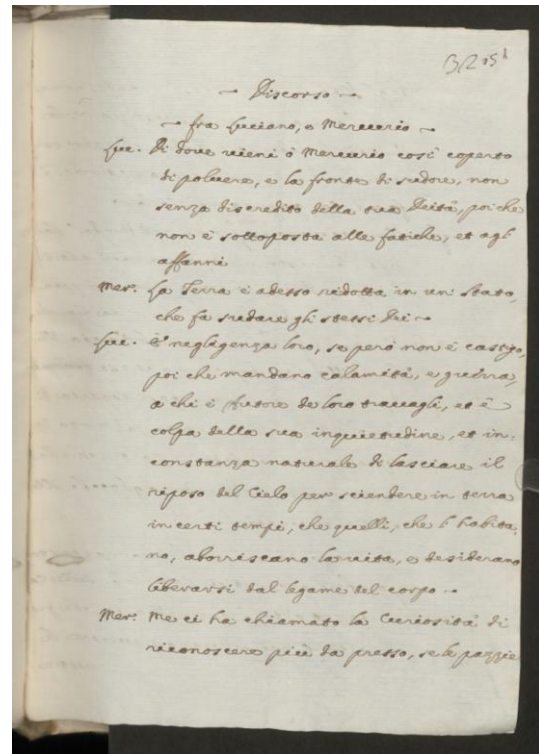 Discorso
fra Luciano, e Mercurio
Luc. Di dove vieni ò Mercurio così coperto
di poluere, e la fronte di sudore, non
senza discredito della tua Deità, poi che
non è sottoposta alle fatiche, et agl'
affanni
Mer. La Terra è adesso ridotta in uni stato,
che fa sudare gli stessi Dei
Luc. È negligenza loro, se però non è castigo,
poi che mandano calamità, e guerra,
a chi è Autore de loro travagli, et è
colpa della tua inquietudine, et in-
constanza naturale di lasciare il
riposo del Cielo per sciendere in terra
in certi tempi, che quelli, che l'habita-
no, aborriscano la vita, e desiderano
liberarsi dal legame del corpo
Mer. Me ci ha chiamato la Curiosità di
riconoscere più da presso, se le pazzie